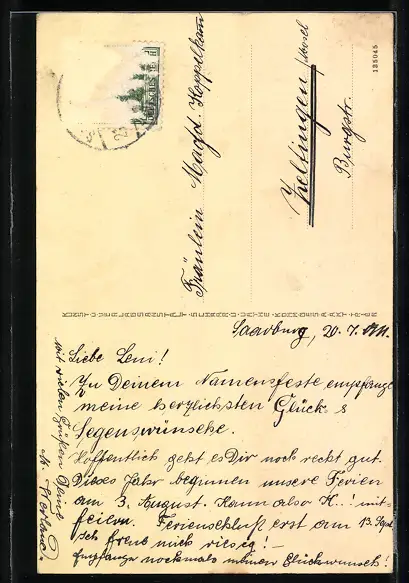 Fräulein Magd. Hoppelkam
Zeltingen /Mosel
Burgstr.
135045
KUNST- U. VERLAGSANSTALT SCHAAR & DATHE KOMM.-GES. A. AKT. TRIER
Saarburg, 20. 7.
Liebe Leni!
Zu Deinem Namensfeste empfange
meine herzlichsten Glück &
Segenswünsche.
Hoffentlich geht es Dir noch recht gut.
Dieses Jahr beginnen unsere Ferien
am 3. August. Kann also K..! mit-
feiern. Ferienschluß erst am 13. Sept.
Ich freue mich riesig! –
Empfange nochmals meinen Glückwunsch!
mit vielen Grüßen